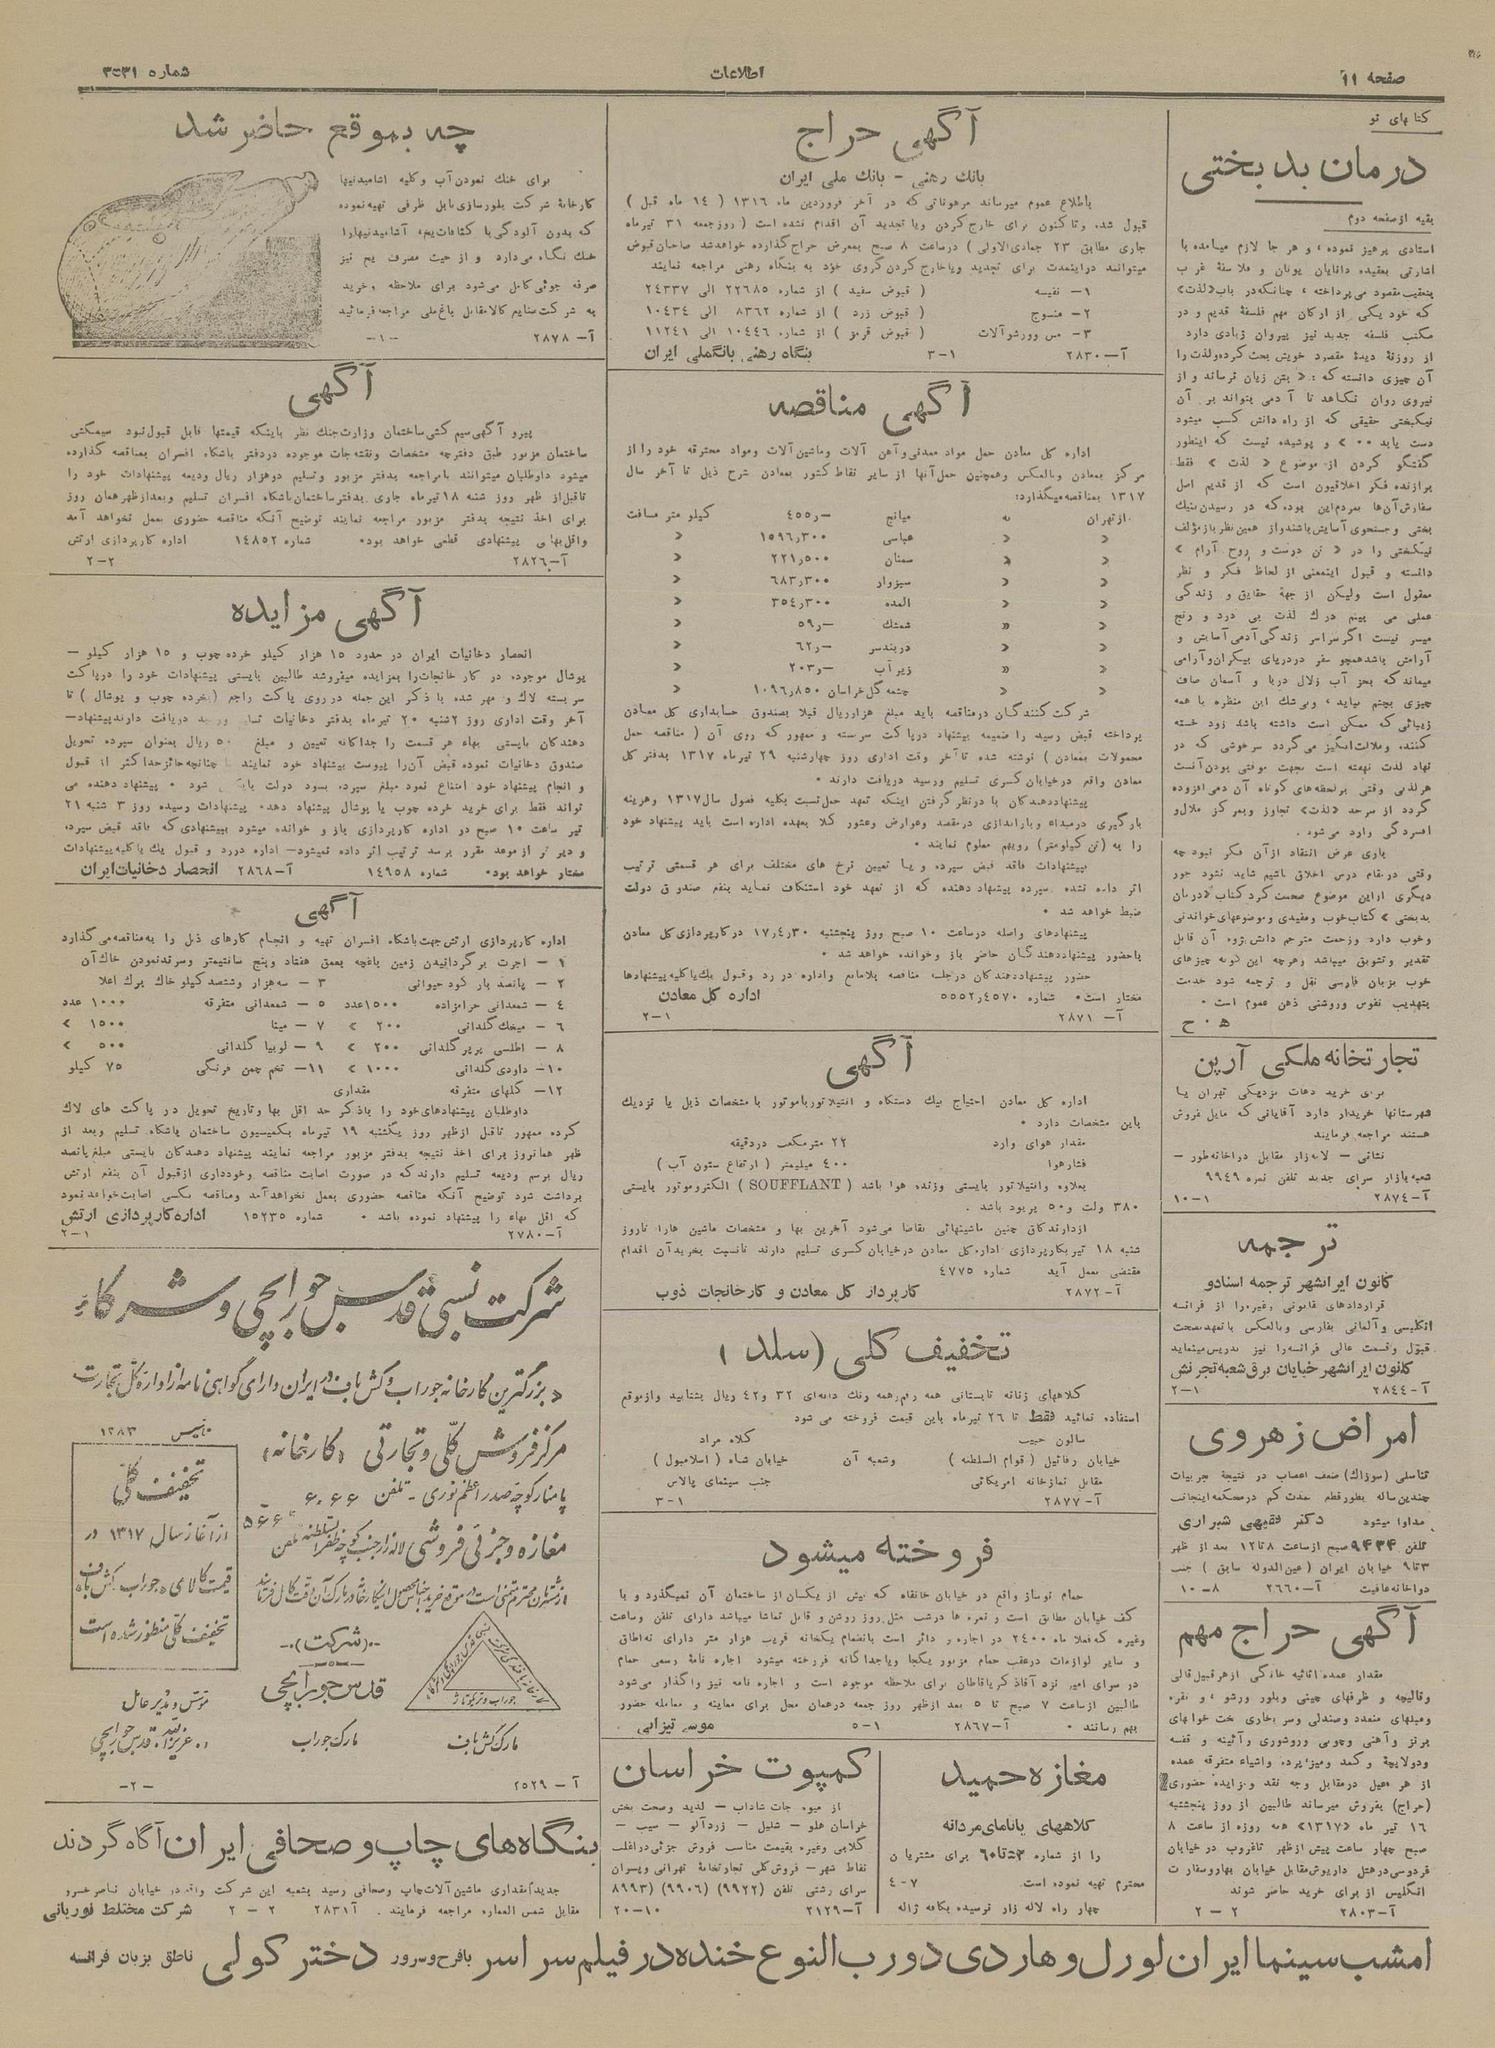 صفحه ۱۱
اطلاعات
شماره ۳۰۳۱
کتابهای نو
درمان بدبختی
بقیه از صفحه دوم
استادی پرهیز نموده، و هر جا لازم میآمده با
اشارتی بعقیده دانایان یونان و فلاسفهٔ غرب
بتعقیب مقصود می پرداخته، چنانکه در باب «لذت»
که خود یکی از ارکان مهم فلسفهٔ قدیم و در
مکتب فلسفه جدید نیز پیروان زیادی دارد
از روزنهٔ دیدهٔ مقصود خویش بحث کرده ولذت را
آن چیزی دانسته که: « بتن زیان نرساند و از
نیروی روان نکاهد تا آدمی بتواند بر آن
نیکبختی حقیقی که از راه دانش کسب میشود
دست یابد ۰۰ » و پوشیده نیست که اینطور
گفتگو کردن از موضوع « لذت » فقط
برازنده فکر اخلاقیون است که از قدیم اصل
سفارش آن‌ها بمردم این بوده که در رسیدن بنیک
بختی وجستجوی آسایش باشند واز همین نظر باز مؤلف
نیکبختی را در « تن درست و روح آرام »
دانسته و قبول اینمعنی از لحاظ فکر و نظر
معقول است ولیکن از جههٔ حقایق و زندگی
عملی می بینم درک لذت بی درد و رنج
میسر نیست اگر سراسر زندگی آدمی آسایش و
آرامش باشد همچو سفر در دریای بیکران و آرامی
میماند که بجز آب زلال دریا و آسمان صاف
چیزی بچشم نیاید، و بی شک این منظره با همه
زیبائی که ممکن است داشته باشد زود خسته
کننده وملالت‌انگیز می گردد سرخوشی که در
نهاد لذت نهفته است بجهت موقتی بودن آنست
هر لذتی وقتی بر لحظه‌های کوتاه آن دمی افزوده
گردد از سرحد «لذت» تجاوز وبمرکز ملال و
افسردگی وارد می شود.
باری غرض انتقاد از آن فکر نبود چه
وقتی در مقام درس اخلاق باشیم شاید نشود جور
دیگری از این موضوع صحبت کرد کتاب «درمان
بدبختی» کتاب خوب ومفیدی وموضوعهای خواندنی
وخوب دارد وزحمت مترجم دانش پژوه آن قابل
تقدیر وتشویق میباشد وهرچه این گونه چیزهای
خوب بزبان فارسی نقل و ترجمه شود خدمت
بتهذیب نفوس وروشنی ذهن عموم است ۰
ه ۰ ح
تجارتخانه ملکی آرین
برای خرید دهات نزدیکی تهران یا
شهرستانها خریدار دارد آقایانی که مایل فروش
هستند مراجعه فرمایند
نشانی – لاله‌زار مقابل دراخانه طور –
شعبه بازار سرای جدید تلفن نمره ۹۹۴۹
آ–۲۸۷۴ ۱–۱۰
ترجمه
کانون ایرانشهر ترجمه اسناد و
قراردادهای قانونی وغیره را از فرانسه
انگلیسی و آلمانی بفارسی وبالعکس با تعهد صحت
قبول وقسمت عالی فرانسه را نیز تدریس مینماید
کانون ایرانشهر خیابان برق شعبه تجرش
آ–۲۸۴۴ ۱–۲
امراض زهروی
تناسلی (سوزاک) ضعف اعصاب در نتیجهٔ تجربیات
چندین ساله بطور قطع بمدت کم در محکمه اینجانب
مداوا میشود دکتر فقیهی شیرازی
تلفن ۹۴۳۴ صبح از ساعت ۸ تا ۱۲ بعد از ظهر
۳ تا ۹ خیابان ایران (عین الدوله سابق) جنب
دواخانه عافیت آ–۲۶۶۰ ۸–۱۰
آگهی حراج مهم
مقدار عمده اثاثیه خانگی از هر قبیل قالی
وقالیچه و ظرفهای چینی وبلور ورشو، و نقره
ومبلهای متعدد وصندلی وسر بخاری تخت خوابهای
برنز و آهنی وچوبی وروشوری و آئینه و قفسه
ودولابچهٔ و کمد ومیز، پرده واشیاء متفرقه عمده
از هر قبیل در مقابل وجه نقد و مزایده حضوری
(حراج) بفروش میرساند طالبین از روز پنجشنبه
۱۶ تیر ماه «۱۳۱۷» همه روزه از ساعت ۸
صبح چهار ساعت پیش از ظهر تا غروب در خیابان
فردوسی در هتل داریوش مقابل خیابان بهار وسفارت
انگلیس از برای خرید حاضر شوند
آ–۲۸۰۳ ۲–۲
آگهی حراج
بانک رهنی – بانک ملی ایران
باطلاع عموم میرساند مرهوناتی که در آخر فروردین ماه ۱۳۱۶ ( ۱۴ ماه قبل )
قبول شده وتا کنون برای خارج کردن ویا تجدید آن اقدام نشده است ( روز جمعه ۳۱ تیر ماه
جاری مطابق ۲۳ جمادی‌الاولی ) در ساعت ۸ صبح بمعرض حراج گذارده خواهد شد صاحبان قبوض
میتوانند در اینمدت برای تجدید ویا خارج کردن گروی خود به بنگاه رهنی مراجعه نمایند
۱– نفیسه ( قبوض سفید ) از شماره ۲۲۶۸۵ الی ۲۴۳۳۷
۲– منسوج ( قبوض زرد ) از شماره ۸۳۶۲ الی ۱۰۴۳۴
۳– مس وورشو آلات ( قبوض قرمز ) از شماره ۱۰۴۴۶ الی ۱۱۲۴۱
آ–۲۸۳۰ ۱–۳ بنگاه رهنی بانگملی ایران
آگهی مناقصه
اداره کل معادن حمل مواد معدنی و آهن آلات وماشین آلات ومواد محترقه خود را از
مرکز بمعادن وبالعکس وهمچنین حمل آنها از سایر نقاط کشور بمعادن شرح ذیل تا آخر سال
۱۳۱۷ بمناقصه میگذارد:
از تهران به میانج ۴۵۵٫– کیلو متر مسافت
« « عباسی ۱۵۹۶٫۳۰۰ «
« « سمنان ۲۲۱٫۵۰۰ «
« « سبزوار ۶۸۳٫۳۰۰ «
« « المده ۳۵۴٫۳۰۰ «
« « شمشک ۵۹٫– «
« « دربندسر ۶۲٫– «
« « زیر آب ۲۰۳٫– «
« « چشمه گل خراسان ۱۰۹۶٫۸۵۰ «
شرکت کنندگان در مناقصه باید مبلغ هزار ریال قبلا بصندوق حسابداری کل معادن
پرداخته قبض رسید را ضمیمه پیشنهاد در پاکت سربسته و ممهور که روی آن ( مناقصه حمل
محمولات بمعادن ) نوشته شده تا آخر وقت اداری روز چهارشنبه ۲۹ تیر ماه ۱۳۱۷ بدفتر کل
معادن واقع در خیابان کسری تسلیم ورسید دریافت دارند ۰
پیشنهاد دهندگان با در نظر گرفتن اینکه تعهد حمل نسبت بکلیه فصول سال ۱۳۱۷ وهزینه
بارگیری در مبداء وباراندازی در مقصد وعوارض وعشور کلا بعهده اداره است باید پیشنهاد خود
را به (تن کیلومتر) روبهم معلوم نمایند ۰
پیشنهادات فاقد قبض سپرده و یا تعیین نرخ های مختلف برای هر قسمتی ترتیب
اثر داده نشده سپرده پیشنهاد دهنده که از تعهد خود استنکاف نماید بنفع صندوق دولت
ضبط خواهد شد ۰
پیشنهادهای واصله در ساعت ۱۰ صبح روز پنجشنبه ۱۷٫۴٫۳۰ در کارپردازی کل معادن
با حضور پیشنهاد دهندگان حاضر باز وخوانده خواهد شد ۰
حضور پیشنهاد دهندگان در جلسه مناقصه بلامانع واداره در رد وقبول یک یا کلیه پیشنهادها
مختار است۰ شماره ۵۵۵۲٫۴۵۷۰ اداره کل معادن
آ– ۲۸۷۱ ۱–۲
آگهی
اداره کل معادن احتیاج بیک دستگاه وانتیلاتور با موتور با مشخصات ذیل یا نزدیک
باین مشخصات دارد ۰
مقدار هوای وارد ۲۲ متر مکعب در دقیقه
فشار هوا ۴۰۰ میلیمتر ( ارتفاع ستون آب )
بعلاوه وانتیلاتور بایستی وزنده هوا باشد ( SOUFFLANT ) الکتروموتور بایستی
۳۸۰ ولت و ۵۰ پریود باشد.
از دارندگان چنین ماشینهائی تقاضا می‌شود آخرین بها و مشخصات ماشین ها را تا روز
شنبه ۱۸ تیر بکارپردازی اداره کل معادن در خیابان کسری تسلیم دارند تا نسبت بخرید آن اقدام
مقتضی بعمل آید شماره ۴۷۷۵
آ–۲۸۷۲ کارپرداز کل معادن و کارخانجات ذوب
تخفیف کلی (سلد)
کلاههای زنانه تابستانی همه رقم، همه رنگ دانه‌ای ۳۲ و ۴۲ ریال بشتابید واز موقع
استفاده نمائید فقط تا ۲۶ تیر ماه باین قیمت فروخته می شود
سالون حبیب کلاه مراد
خیابان رفائیل ( قوام السلطنه ) وشعبه آن خیابان شاه ( اسلامبول )
مقابل نمازخانه امریکائی جنب سینمای پالاس
آ–۲۸۷۷ ۱–۳
فروخته میشود
حمام نوساز واقع در خیابان خانقاه که بیش از یکسال از ساختمان آن نمیگذرد و با
کف خیابان مطابق است و نمره ها در شب مثل روز روشن و قابل تماشا میباشد دارای تلفن وساعت
وغیره که فعلا ماه ۲۴۰۰ در اجاره و دائر است بانضمام یکخانه قریب هزار متر دارای نه اطاق
و سایر لوازمات در عقب حمام مزبور یکجا ویا جداگانه فروخته میشود اجاره نامهٔ رسمی حمام
در سرای امیر نزد آقا ذکریا قاطان برای ملاحظه موجود است و اجاره نامه نیز واگذار می‌شود
طالبین از ساعت ۷ صبح تا ۵ بعد از ظهر روز جمعه در همان محل برای معاینه و معامله حضور
بهم رسانند ۰ آ–۲۸۶۷ ۱–۵ موسی تیزابی
مغازه حمید
کلاههای پانامای مردانه
را از شماره ۵۳ تا ۶۰ برای مشتریان
محترم تهیه نموده است. ۷–۴
چهار راه لاله زار نرسیده بکافه ژاله
کمپوت خراسان
از میوه جات شاداب – لذیذ وصحت بخش
خراسان هلو – شلیل – زردآلو – سیب –
گلابی وغیره بقیمت مناسب فروش جزئی در اغلب
نقاط شهر – فروش کلی تجارتخانهٔ تهرانی و پسران
سرای رشتی تلفن (۹۹۲۲) (۹۹۰۶) (۸۹۹۳)
آ–۲۱۲۹ ۱۰–۲۰
چه بموقع حاضر شد
برای خنک نمودن آب وکلیه آشامیدنیها
کارخانهٔ شرکت بلورسازی بابل ظرفی تهیه نموده
که بدون آلودگی با کثافات یخ، آشامیدنیها را
خنک نگاه می‌دارد و از حیث مصرف یخ نیز
صرفه جوئی کامل می‌شود برای ملاحظه وخرید
به شرکت صنایع کالا مقابل باغ ملی مراجعه فرمائید
آ–۲۸۷۸ –۱–
آگهی
پیرو آگهی سیم کشی ساختمان وزارت جنگ نظر باینکه قیمتها قابل قبول نبود سیمکشی
ساختمان مزبور طبق دفترچه مشخصات ونقشه‌جات موجوده در دفتر باشگاه افسران بمناقصه گذارده
میشود داوطلبان میتوانند با مراجعه بدفتر مزبور وتسلیم دو هزار ریال ودیعه پیشنهادات خود را
تا قبل از ظهر روز شنبه ۱۸ تیر ماه جاری بدفتر ساختمان باشگاه افسران تسلیم وبعد از ظهر همان روز
برای اخذ نتیجه بدفتر مزبور مراجعه نمایند توضیح آنکه مناقصه حضوری بعمل نخواهد آمد
واقل بهای پیشنهادی قطعی خواهد بود۰ شماره ۱۴۸۵۲ اداره کارپردازی ارتش
آ–۲۸۲۶ ۲–۲
آگهی مزایده
انحصار دخانیات ایران در حدود ۱۵ هزار کیلو خرده چوب و ۱۵ هزار کیلو –
پوشال موجوده در کارخانجات را بمزایده میفروشد طالبین بایستی پیشنهادات خود را در پاکت
سربسته لاک و مهر شده با ذکر این جمله در روی پاکت راجع (بخرده چوب و پوشال ) تا
آخر وقت اداری روز ۲شنبه ۲۰ تیر ماه بدفتر دخانیات تسلیم ورسید دریافت دارند پیشنهاد–
دهندگان بایستی بهاء هر قسمت را جداگانه تعیین و مبلغ ۵۰ ریال بعنوان سپرده تحویل
صندوق دخانیات نموده قبض آن را پیوست پیشنهاد خود نمایند چنانچه حائز حداکثر از قبول
و انجام پیشنهاد خود امتناع نمود مبلغ سپرده بسود دولت شود ۰ پیشنهاد دهنده می
تواند فقط برای خرید خرده چوب یا پوشال پیشنهاد دهد۰ پیشنهادات رسیده روز ۳ شنبه ۲۱
تیر ساعت ۱۰ صبح در اداره کارپردازی باز و خوانده میشود پیشنهادی که فاقد قبض سپرده
و دیر تر از موعد مقرر برسد ترتیب اثر داده نمیشود – اداره در رد و قبول یک یا کلیه پیشنهادات
مختار خواهد بود۰ شماره ۱۴۹۵۸ آ–۲۸۶۸ انحصار دخانیات ایران
آگهی
اداره کارپردازی ارتش جهت باشگاه افسران تهیه و انجام کارهای ذیل را به مناقصه می گذارد
۱ – اجرت برگردانیدن زمین باغچه بعمق هفتاد وپنج سانتیمتر وسرند نمودن خاک آن
۲ – پانصد بار کود حیوانی ۳ – سه هزار وششصد کیلو خاک برگ اعلا
۴ – شمعدانی حرامزاده ۱۵۰۰ عدد ۵ – شمعدانی متفرقه ۱۰۰۰ عدد
۶ – میخک گلدانی ۲۰۰ » ۷ – مینا ۱۵۰۰ »
۸ – اطلسی پرپر گلدانی ۲۰۰ » ۹ – لوبیا گلدانی ۵۰۰ »
۱۰– داودی گلدانی ۱۰۰۰ » ۱۱– تخم چمن فرنگی ۷۵ کیلو
۱۲– گلهای متفرقه مقداری
داوطلبان پیشنهادهای خود را با ذکر حد اقل بها وتاریخ تحویل در پاکت های لاک
کرده ممهور تا قبل از ظهر روز یکشنبه ۱۹ تیر ماه بکمیسیون ساختمان باشگاه تسلیم وبعد از
ظهر همانروز برای اخذ نتیجه بدفتر مزبور مراجعه نمایند پیشنهاد دهندگان بایستی مبلغ پانصد
ریال برسم ودیعه تسلیم دارند که در صورت اصابت مناقصه وخودداری از قبول آن بنفع ارتش
برداشت شود توضیح آنکه مناقصه حضوری بعمل نخواهد آمد ومناقصه بکسی اصابت خواهد نمود
که اقل بهاء را پیشنهاد نموده باشد ۰ شماره ۱۵۲۳۵ اداره کارپردازی ارتش
آ–۲۷۸۰ ۱–۲
شرکت نسبی قدس جورابچی و شرکاء
« بزرگترین کارخانه جوراب و کش باف در ایران دارای گواهی نامه از اداره کل تجارت
مرکز فروش کلی و تجارتی «کارخانه»
پامنار کوچه صدر اعظم نوری – تلفن ۶۰۶۶
مغازه و جزئی فروشی لاله زار جنب کوچه تلفن ۵۶۶۰
تأسیس ۱۲۸۳
تخفیف کلی
از آغاز سال ۱۳۱۷ در
قیمت کالای «جوراب کش باف»
تخفیف کلی منظور شده است
–(شرکت)–
قدس جورابچی
مارک کش باف
مارک جوراب
مؤسس و مدیر عامل
عزیزالله قدس جورابچی
آ–۲۵۲۹
–۲–
بنگاه‌های چاپ و صحافی ایران آگاه گردند
جدیداً مقداری ماشین آلات چاپ وصحافی رسید بشعبه این شرکت واقعه در خیابان ناصر خسرو
مقابل شمس العماره مراجعه فرمایند. آ۲۸۳۱ ۲–۲ شرکت مختلط نوریانی
امشب سینما ایران لورل و هاردی دو رب النوع خنده در فیلم سراسر با فرح و سرور دختر کولی ناطق بزبان فرانسه